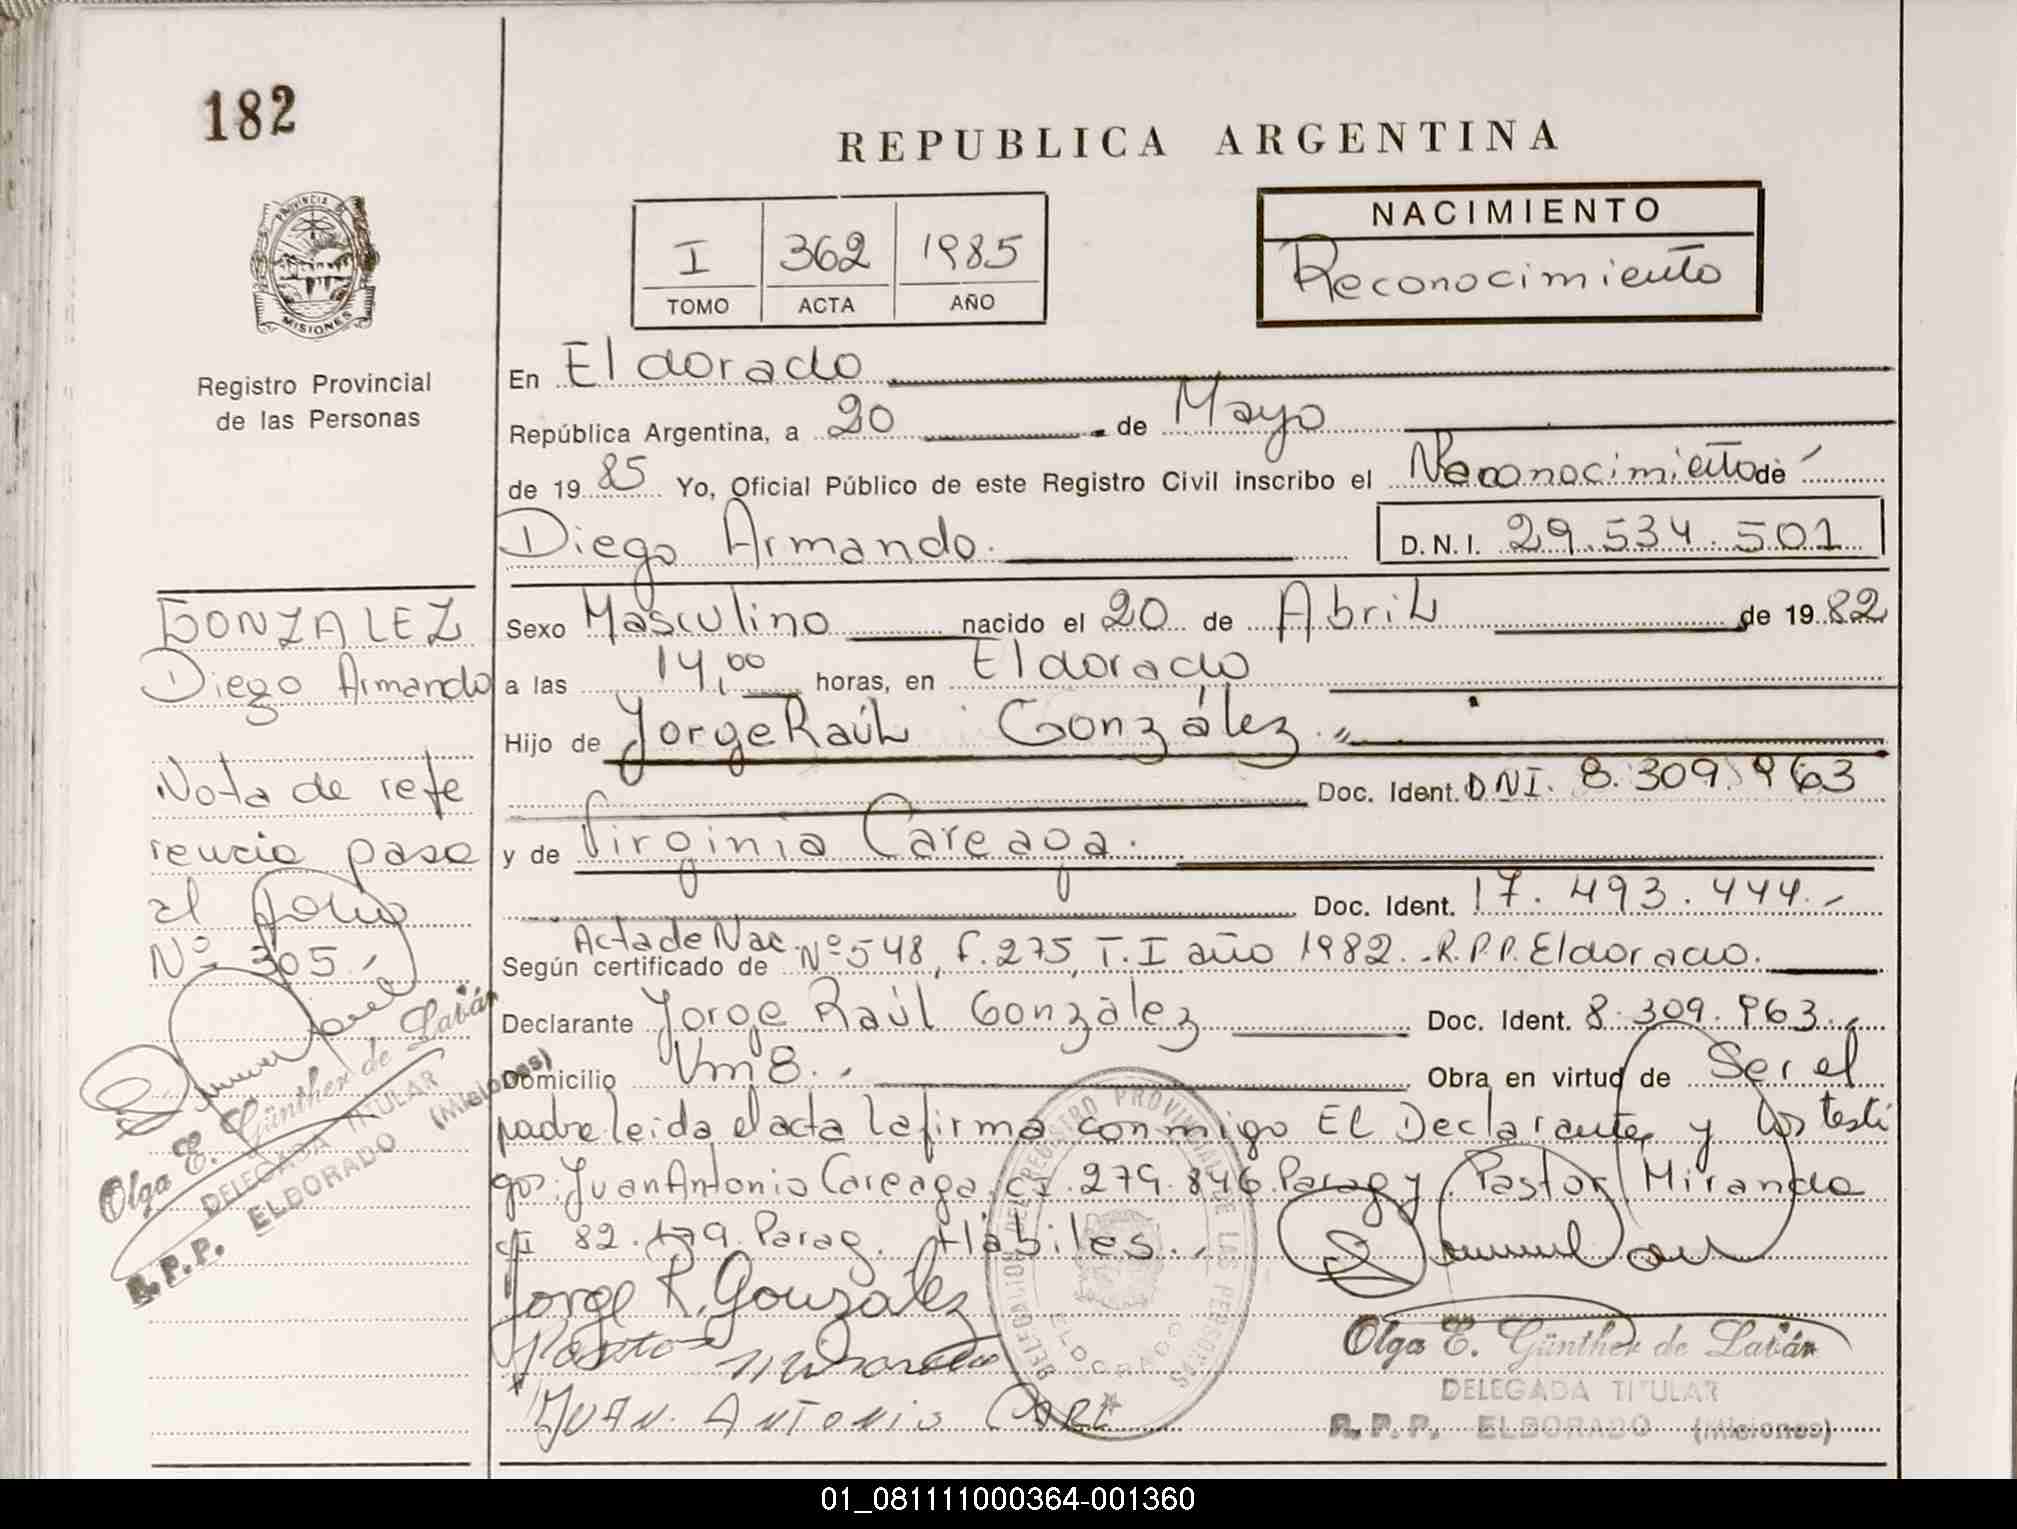 182
REPUBLICA ARGENTINA
PROVINCIA DE
MISIONES
Registro Provincial
de las Personas
I 362 1985
TOMO ACTA AÑO
NACIMIENTO
Reconocimiento
En Eldorado
República Argentina, a 20 de Mayo
de 1985 Yo, Oficial Público de este Registro Civil inscribo el Reconocimiento de
Diego Armando. D.N.I. 29.534.501
GONZALEZ
Diego Armando
Nota de refe
rencia pasa
al folio
Nº 305
Olga E. Günther de Labán
DELEGADA TITULAR
R.P.P. ELDORADO (Misiones)
Sexo Masculino nacido el 20 de Abril de 1982
a las 14,00 horas, en Eldorado
Hijo de Jorge Raúl González
Doc. Ident. DNI. 8.309.963
y de Virginia Careaga.
Doc. Ident. 17.493.444.-
Según certificado de Acta de Nac. Nº 548, f. 275, T. I año 1982.-R.P.P. Eldorado.
Declarante Jorge Raúl González Doc. Ident. 8.309.963.-
Domicilio Km 8. Obra en virtud de Ser el
padre leida el acta la firma conmigo El Declarante y los testi
gos: Juan Antonio Careaga, CI. 279.846 Parag y Pastor Miranda
CI 82.179. Parag. Hábiles.
Jorge R. Gonzalez
Pastor Miranda
JUAN. ANTONIO CARE
DELEGACION DEL REGISTRO PROVINCIAL DE LAS PERSONAS
ELDORADO
Olga E. Günther de Labán
DELEGADA TITULAR
R.P.P. ELDORADO (Misiones)
01_081111000364-001360